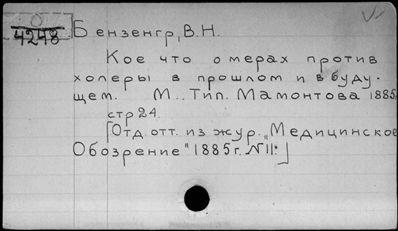 4248
Бензенгр, В.Н.
Кое что о мерах против
холеры в прошлом и в буду-
щем. М. Тип. Мамонтова 1885
стр 24.
[Отд. отт. из жур. „Медицинское
Обозрение" 1885 г. № 11.]